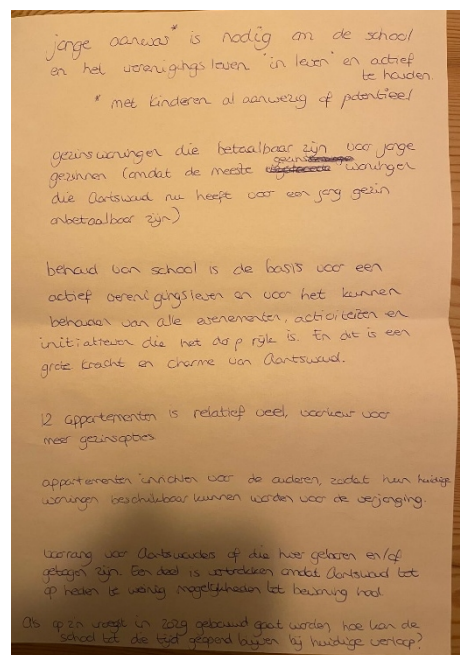 jonge aanwas* is nodig om de school
en het verenigingsleven "in leven" en actief
te houden.
* met kinderen al aanwezig of potentieel
gezinswoningen die betaalbaar zijn voor jonge
gezinnen (omdat de meeste gezins woningen
die Aartswoud nu heeft voor een jong gezin
onbetaalbaar zijn)
behoud van school is de basis voor een
actief verenigingsleven en voor het kunnen
behouden van alle evenementen, activiteiten en
initiatieven die het dorp rijk is. En dit is een
grote kracht en charme van Aartswoud.
12 appartementen is relatief veel, voorkeur voor
meer gezinsopties
appartementen inrichten voor de ouderen, zodat hun huidige
woningen beschikbaar kunnen worden voor de verjonging.
Voorrang voor Aartswouders of die hier geboren en/of
getogen zijn. Een deel is vertrokken omdat Aartswoud tot
op heden te weinig mogelijkheden tot bewoning had
Als op zn vroegst in 2029 gebouwd gaat worden hoe kan de
school tot die tijd geopend blijven bij huidige verloop?